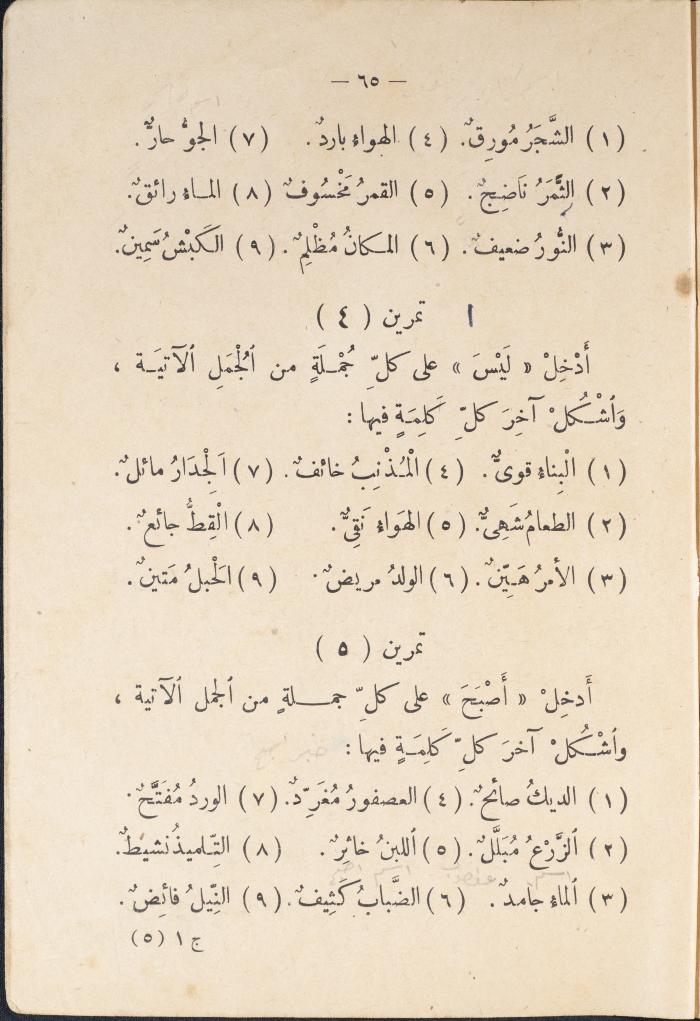 — ٦٥ —
(١) الشَّجَرُ مُورِقٌ. (٤) الهواء باردٌ. (٧) الجوُّ حارٌّ.
(٢) الثَّمَرُ نَاضِجٌ. (٥) القمرُ مَخْسُوفٌ (٨) الماء رائقٌ.
(٣) النُّورُ ضعيفٌ. (٦) المكانُ مُظْلِمٌ. (٩) الكَبْشُ سَمِينٌ.
تمرين (٤)
أَدْخِلْ « لَيْسَ » على كلِّ جُمْلَةٍ من ٱلْجُمَلِ ٱلآتيَة ،
وَٱشْكُلْ آخِرَ كلِّ كَلِمَةٍ فيها :
(١) الْبِناء قوىٌّ. (٤) الْمُذْنِبُ خائفٌ. (٧) اَلْجِدَارُ مائلٌ.
(٢) الطعامُ شَهِىٌّ. (٥) الهَوَاء نَقِىٌّ. (٨) الْقِطُّ جائعٌ.
(٣) الأمرُ هَيِّنٌ. (٦) الولدُ مريضٌ. (٩) اَلْحَبلُ مَتينٌ.
تمرين (٥)
أَدخِلْ « أَصْبَحَ » على كلِّ جملةٍ من ٱلجمل ٱلآتية ،
وٱشْكُلْ آخرَ كلِّ كَلِمَةٍ فيها :
(١) الديكُ صائحٌ. (٤) العصفورُ مُغَرِّدٌ. (٧) الوردُ مُفَتَّحٌ.
(٢) ٱلزَّرْعُ مُبَلَّلٌ. (٥) ٱللبنُ خاثِرٌ. (٨) التِّلميذُ نشيطٌ.
(٣) ٱلماء جامدٌ. (٦) الضَّبابُ كَثِيفٌ. (٩) النِّيلُ فائضٌ.
ج ١ (٥)